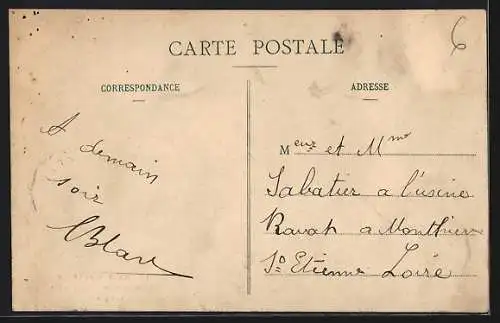 CARTE POSTALE
6
CORRESPONDANCE
ADRESSE
A demain
soir
Meur et Mme
Sabatier a l'usine
Ravat a Monthieu
St Etienne Loire